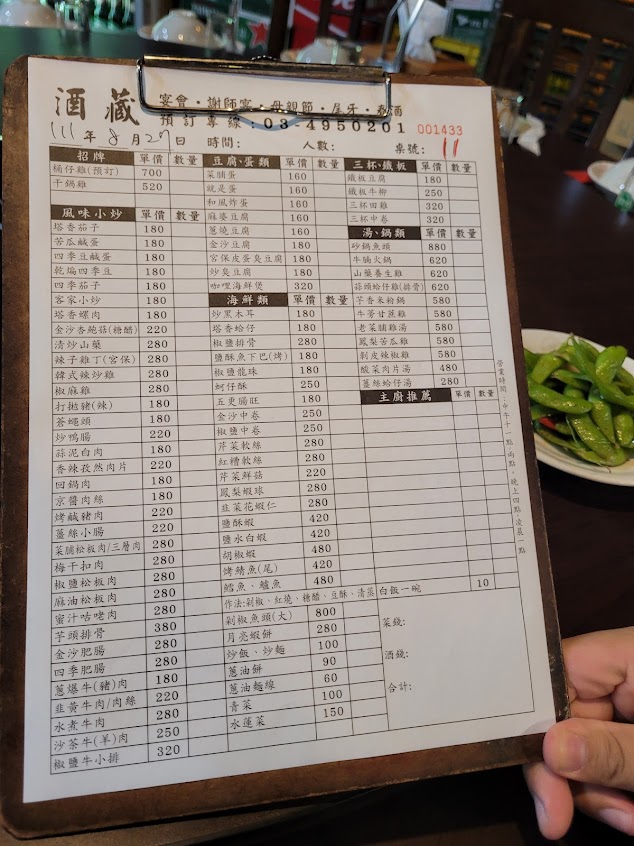 酒藏 宴會・謝師宴・母親節・尾牙・春酒
預訂專線:03-4950201 001433
111年8月27日 時間: 人數: 桌號: 11
招牌 單價 數量
桶仔雞(預訂) 700
干鍋雞 520
風味小炒 單價 數量
塔香茄子 180
苦瓜鹹蛋 180
四季豆鹹蛋 180
乾煸四季豆 180
四季茄子 180
客家小炒 180
塔香螺肉 180
金沙杏鮑菇(糖醋) 220
清炒山藥 280
辣子雞丁(宮保) 280
韓式辣炒雞 280
椒麻雞 280
打拋豬(辣) 180
蒼蠅頭 180
炒鴨腸 220
蒜泥白肉 180
香辣孜然肉片 220
回鍋肉 180
京醬肉絲 180
烤鹹豬肉 220
薑絲小腸 220
菜脯松板肉/三層肉 280
梅干扣肉 280
椒鹽松板肉 280
麻油松板肉 280
蜜汁咕咾肉 280
芋頭排骨 380
金沙肥腸 280
四季肥腸 280
蔥爆牛(豬)肉 180
韭黃牛肉/肉絲 220
水煮牛肉 280
沙茶牛(羊)肉 250
椒鹽牛小排 320
豆腐、蛋類 單價 數量
菜脯蛋 160
就是蛋 160
和風炸蛋 160
麻婆豆腐 160
蔥燒豆腐 160
金沙豆腐 180
宮保皮蛋臭豆腐 180
炒臭豆腐 180
咖哩海鮮煲 320
海鮮類 單價 數量
炒黑木耳 180
塔香蛤仔 180
椒鹽排骨 280
鹽酥魚下巴(烤) 180
椒鹽龍珠 180
蚵仔酥 250
五更腸旺 180
金沙中卷 250
椒鹽中卷 250
芹菜軟絲 280
紅糟軟絲 280
芹菜鮮菇 220
鳳梨蝦球 280
韭菜花蝦仁 280
鹽酥蝦 420
鹽水白蝦 420
胡椒蝦 480
烤鯖魚(尾) 420
鱈魚、鱸魚 480
作法:剁椒、紅燒、糖醋、豆酥、清蒸
剁椒魚頭(大) 800
月亮蝦餅 280
炒飯、炒麵 100
蔥油餅 90
蔥油麵線 60
青菜 100
水蓮菜 150
三杯、鐵板 單價 數量
鐵板豆腐 180
鐵板牛柳 250
三杯田雞 320
三杯中卷 320
湯、鍋類 單價 數量
砂鍋魚頭 880
牛腩火鍋 620
山藥養生雞 620
蒜頭蛤仔雞(排骨) 620
芋香米粉鍋 580
牛蒡甘蔗雞 580
老菜脯雞湯 580
鳳梨苦瓜雞 580
剝皮辣椒雞 580
酸菜肉片湯 480
薑絲蛤仔湯 280
主廚推薦 單價 數量
白飯一碗 10
菜錢:
酒錢:
合計:
營業時間:中午十一點~兩點,晚上四點~凌晨一點